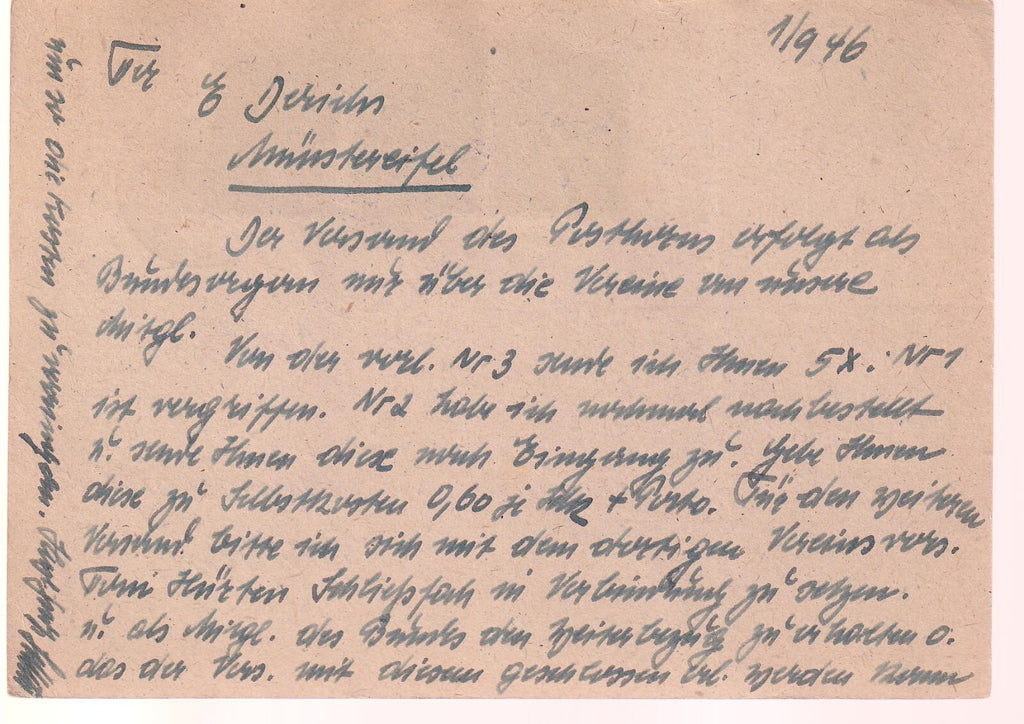 1/9 46
E Derichs
Münstereifel
Der Versand des Posthorns erfolgt als
Bundesorgan nur über die Vereine an unsere
Mitgl.
Von der vorl. Nr 3 sende ich Ihnen 5 X. Nr 1
ist vergriffen. Nr 2 habe ich nochmal nachbestellt
u. sende Ihnen diese nach Eingang zu. Gebe Ihnen
diese zu Selbstkosten 0,60 je Stk + Porto. Für den weiteren
Versand bitte ich sich mit dem dortigen Vereinsvors.
Toni Hürten Schließfach in Verbindung zu setzen.
u. als Mitgl. des Bunds den Weiterbezug zu erhalten o.
das der Vers. mit diesem geschlossen erl. werden kann
um so die Kosten zu verringern.